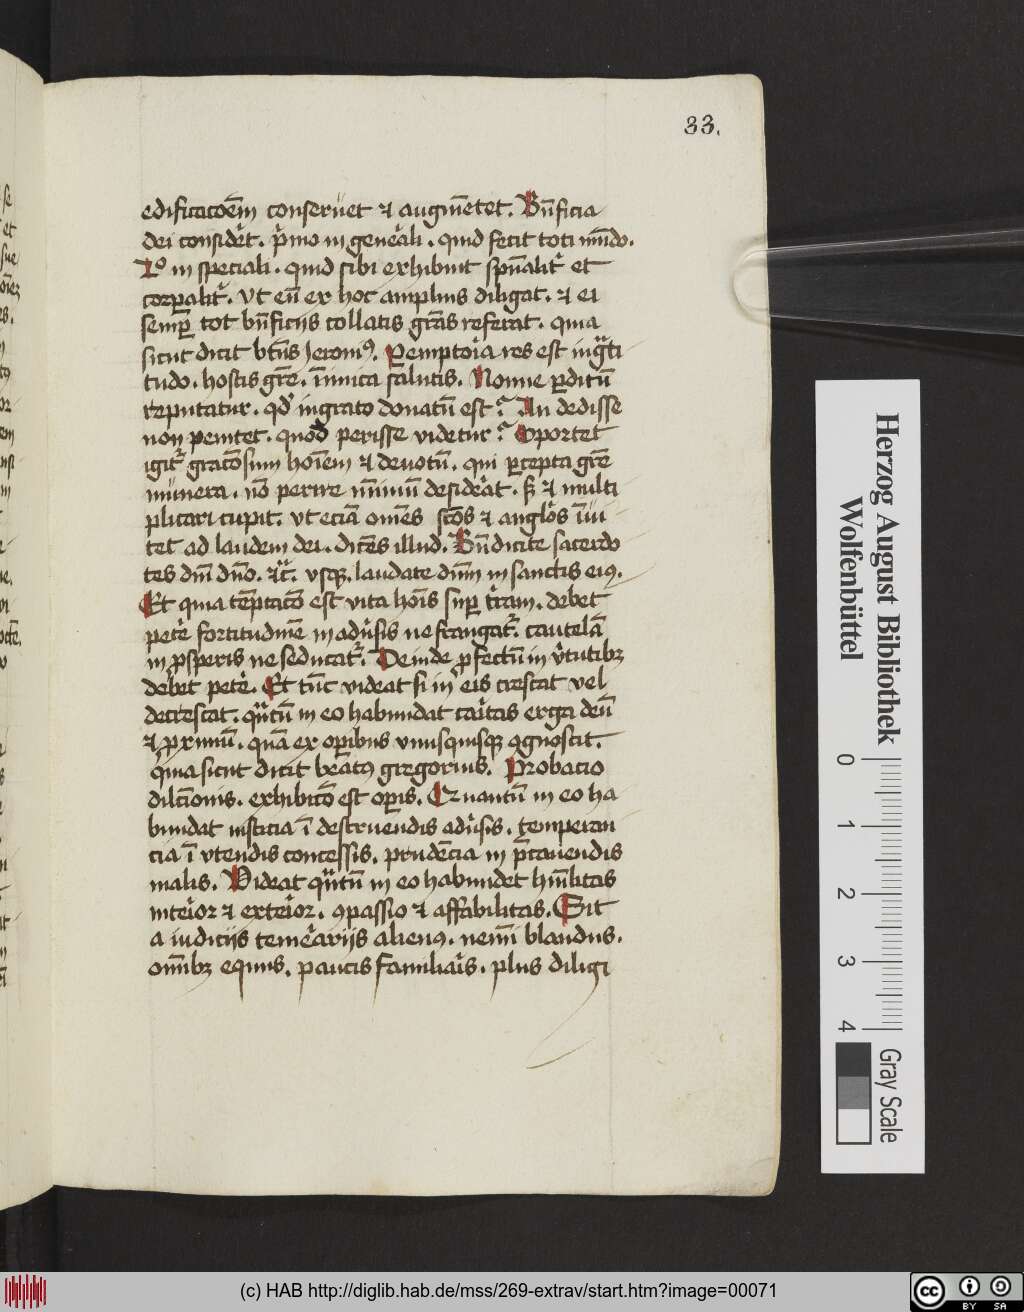 33.
edificacōem conseruet et augmētet. Bn̄ficia
dei considēt. p̄mo in genēali. quid fecit toti mūdo.
2º in speciali. quid sibi exhibuit spūalit̄ et
corporalit̄. vt eū ex hoc amplius diligat. et ei
semp̄ tot bn̄ficijs collatis grās referat. quia
sicut dicit btūs Jeronimꝰ. Pemptoīa res est ingᵃti
tudo. hostis gr̄e. īimica salutis. Nonne perditū
reputatur. qd̓ ingrato donatū est? An dedisse
non penitet. quod perisse videtur? Oportet
igit̄ gratōsum hoīem et deuotū. qui percepta gr̄e
munera. nō perire nīmiū desidēat. sꝫ et multi
plicari cupit. vt eciā omēs scōs et anglōs īui
tet ad laudem dei. dicēs illud. Bn̄dicite sacerdo
tes dn̄i dn̄o. etc̄. vsqꝫ. laudate dn̄m in sanctis eiꝰ.
Et quia tēptacō est vita hoīs sup t̄ram. debet
petē fortitudinē in adūsis ne frangat̄. cautelā
in ꝓsperis ne seducat̄. Deinde ꝓfectū in v̄tutibꝫ
debet petē. Et tūc videat si in eis crescat vel
decrescat. qᵃntū in eo habundat caītas erga deū
et ꝓximū. quā ex opibus vnusquisqꝫ ꝯgnoscit.
quia sicut dicit beatꝰ gregorius. Probacio
dilcīonis. exhibicō est opis. Et quantū in eo ha
bundat iusticia ī destruendis adūsis. temperan
cia ī vtendis concessis. prudēcia in p̄cauendis
malis. Videat qᵃntū in eo habundet hūilitas
inteīor et exteīor. ꝯpassio et affabilitas. Sit
a iudicijs temēarijs alienꝰ. nemī blandus.
omībꝫ equus. paucis familiāis. plus diligi
Herzog August Bibliothek
Wolfenbüttel
0 1 2 3 4
Gray Scale
(c) HAB http://diglib.hab.de/mss/269-extrav/start.htm?image=00071
cc BY SA